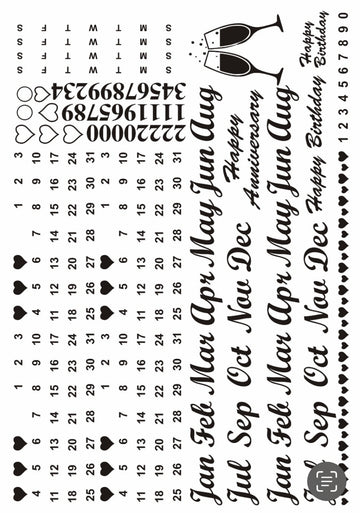 1 2 3 1 2 3
4 5 6 7 8 9 10 4 5 6 7 8 9 10
11 12 13 14 15 16 17 11 12 13 14 15 16 17
18 19 20 21 22 23 24 18 19 20 21 22 23 24
25 26 27 28 29 30 31 25 26 27 28 29 30 31
1 2 3 1 2 3
4 5 6 7 8 9 10 4 5 6 7 8 9 10
11 12 13 14 15 16 17 11 12 13 14 15 16 17
18 19 20 21 22 23 24 18 19 20 21 22 23 24
25 26 27 28 29 30 31 25 26 27 28 29 30 31
S M T W T F S
S M T W T F S
S M T W T F S
S M T W T F S
22220000
1111965789
34567899234
Jan Feb Mar Apr May Jun Aug
Jul Sep Oct Nov Dec
Happy
Anniversary
Jan Feb Mar Apr May Jun Aug
Jul Sep Oct Nov Dec
Happy Birthday
Happy
Birthday
1 2 3 4 5 6 7 8 9 0